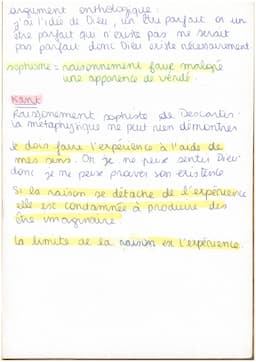 argument onthologique :
j'ai l'idée de Dieu, un être parfait or un
être parfait qui n'existe pas ne serait
pas parfait donc Dieu existe nécessairement
sophisme = raisonnement faux malgré
une apparence de vérité.
KANT
Raisonnement sophiste de Descartes.
la métaphysique ne peut rien démontrer
je dois faire l'expérience à l'aide de
mes sens. Or je ne peux sentir Dieu
donc je ne peux prouver son existence
Si la raison se détache de l'expérience
elle est condamnée à produire des
être imaginaire.
La limite de la raison est l'expérience.